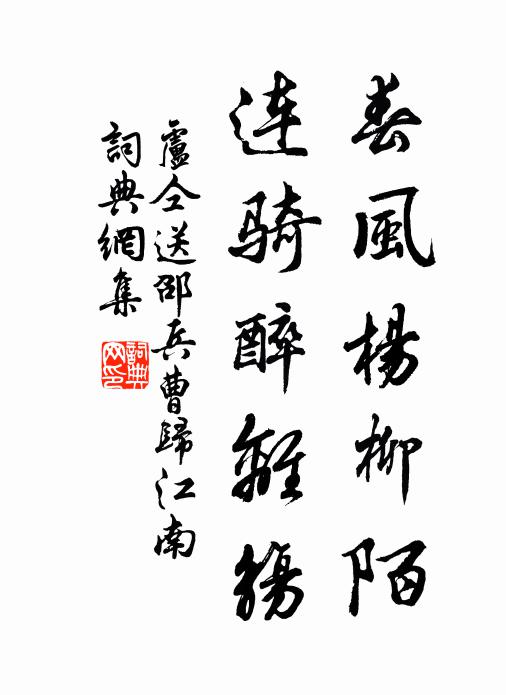 春風楊柳陌
連騎醉離觴
盧仝送邵兵曹歸江南
詞典網集
詞典網印